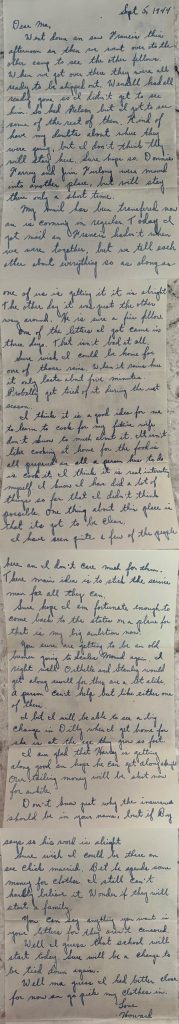 Sept 5, 1944
Dear Ma,
Went down an saw Francis this
afternoon an then we went over to the
other camp to see the other fellows.
When we got over there they were all
ready to be shipped out. Wendell had all
ready gone, so I didn't get to see
him. So had Nelson but I got to see
some of the rest of them. Kind of
have my doubts about where they
were going, but I don't think they
will stay here. Sure hope so. Donnie
Harvey and Jim Furlong were moved
into another place, but will stay
their only a short time.
My mail has been transfered now
an is coming in regular. Today I
got mail an Francis hadn't when
we were together, but we tell each
other about everything so as along as
one of us is getting it it is alright.
The other day it was just the other
way around. He is sure a fine fellow.
One of the letters I got came in
three days. That isn't bad at all.
Sure wish I could be home for
one of those rains. When it rains here
it only lasts about five minutes.
Probably get tired of it during the wet
season.
I think it is a good idea for me
to learn to cook for my future wife
don't know to much about it. It isn't
like cooking at home for the food is
all prepared an all a person has to do
is cook it. I think it is real interesting
myself. I know I have did a lot of
things so far that I didn't think
possible. One thing about this place is
that its got to be clean.
I have seen quite a few of the people
here an I don't care much for them.
There main idea is to stick the service
man for all they can.
Sure hope I am fortunate enough to
come back to the states in a plane for
that is my big ambition now.
You sure are getting to be an old
bum going to Wards again. I
might will Odelite and Stanley would
get along swell for they are a lot alike
a person can't help but like either one
of them.
I bet I will be able to see a big
change in Dolly when I get home for
she is at the age they grow so fast.
I am glad that Harley is getting
along good an hope he can get along alright.
Our sailing money will be shot now
for awhile.
Don't know just why the insurance
should be in your name, but if Boy
says so his word is alright.
Sure wish I could be there an
see Chick married. Bet he spends some
money for clothes. I still can't
hardly believe it. Wonder if they will
start a family.
You can say anything you want in
your letters for they aren't censored.
Well I guess that school will
start today. Sure will be a change to
be tied down again.
Well ma guess I had better close
for now an go get my clothes in.
Love
Howard